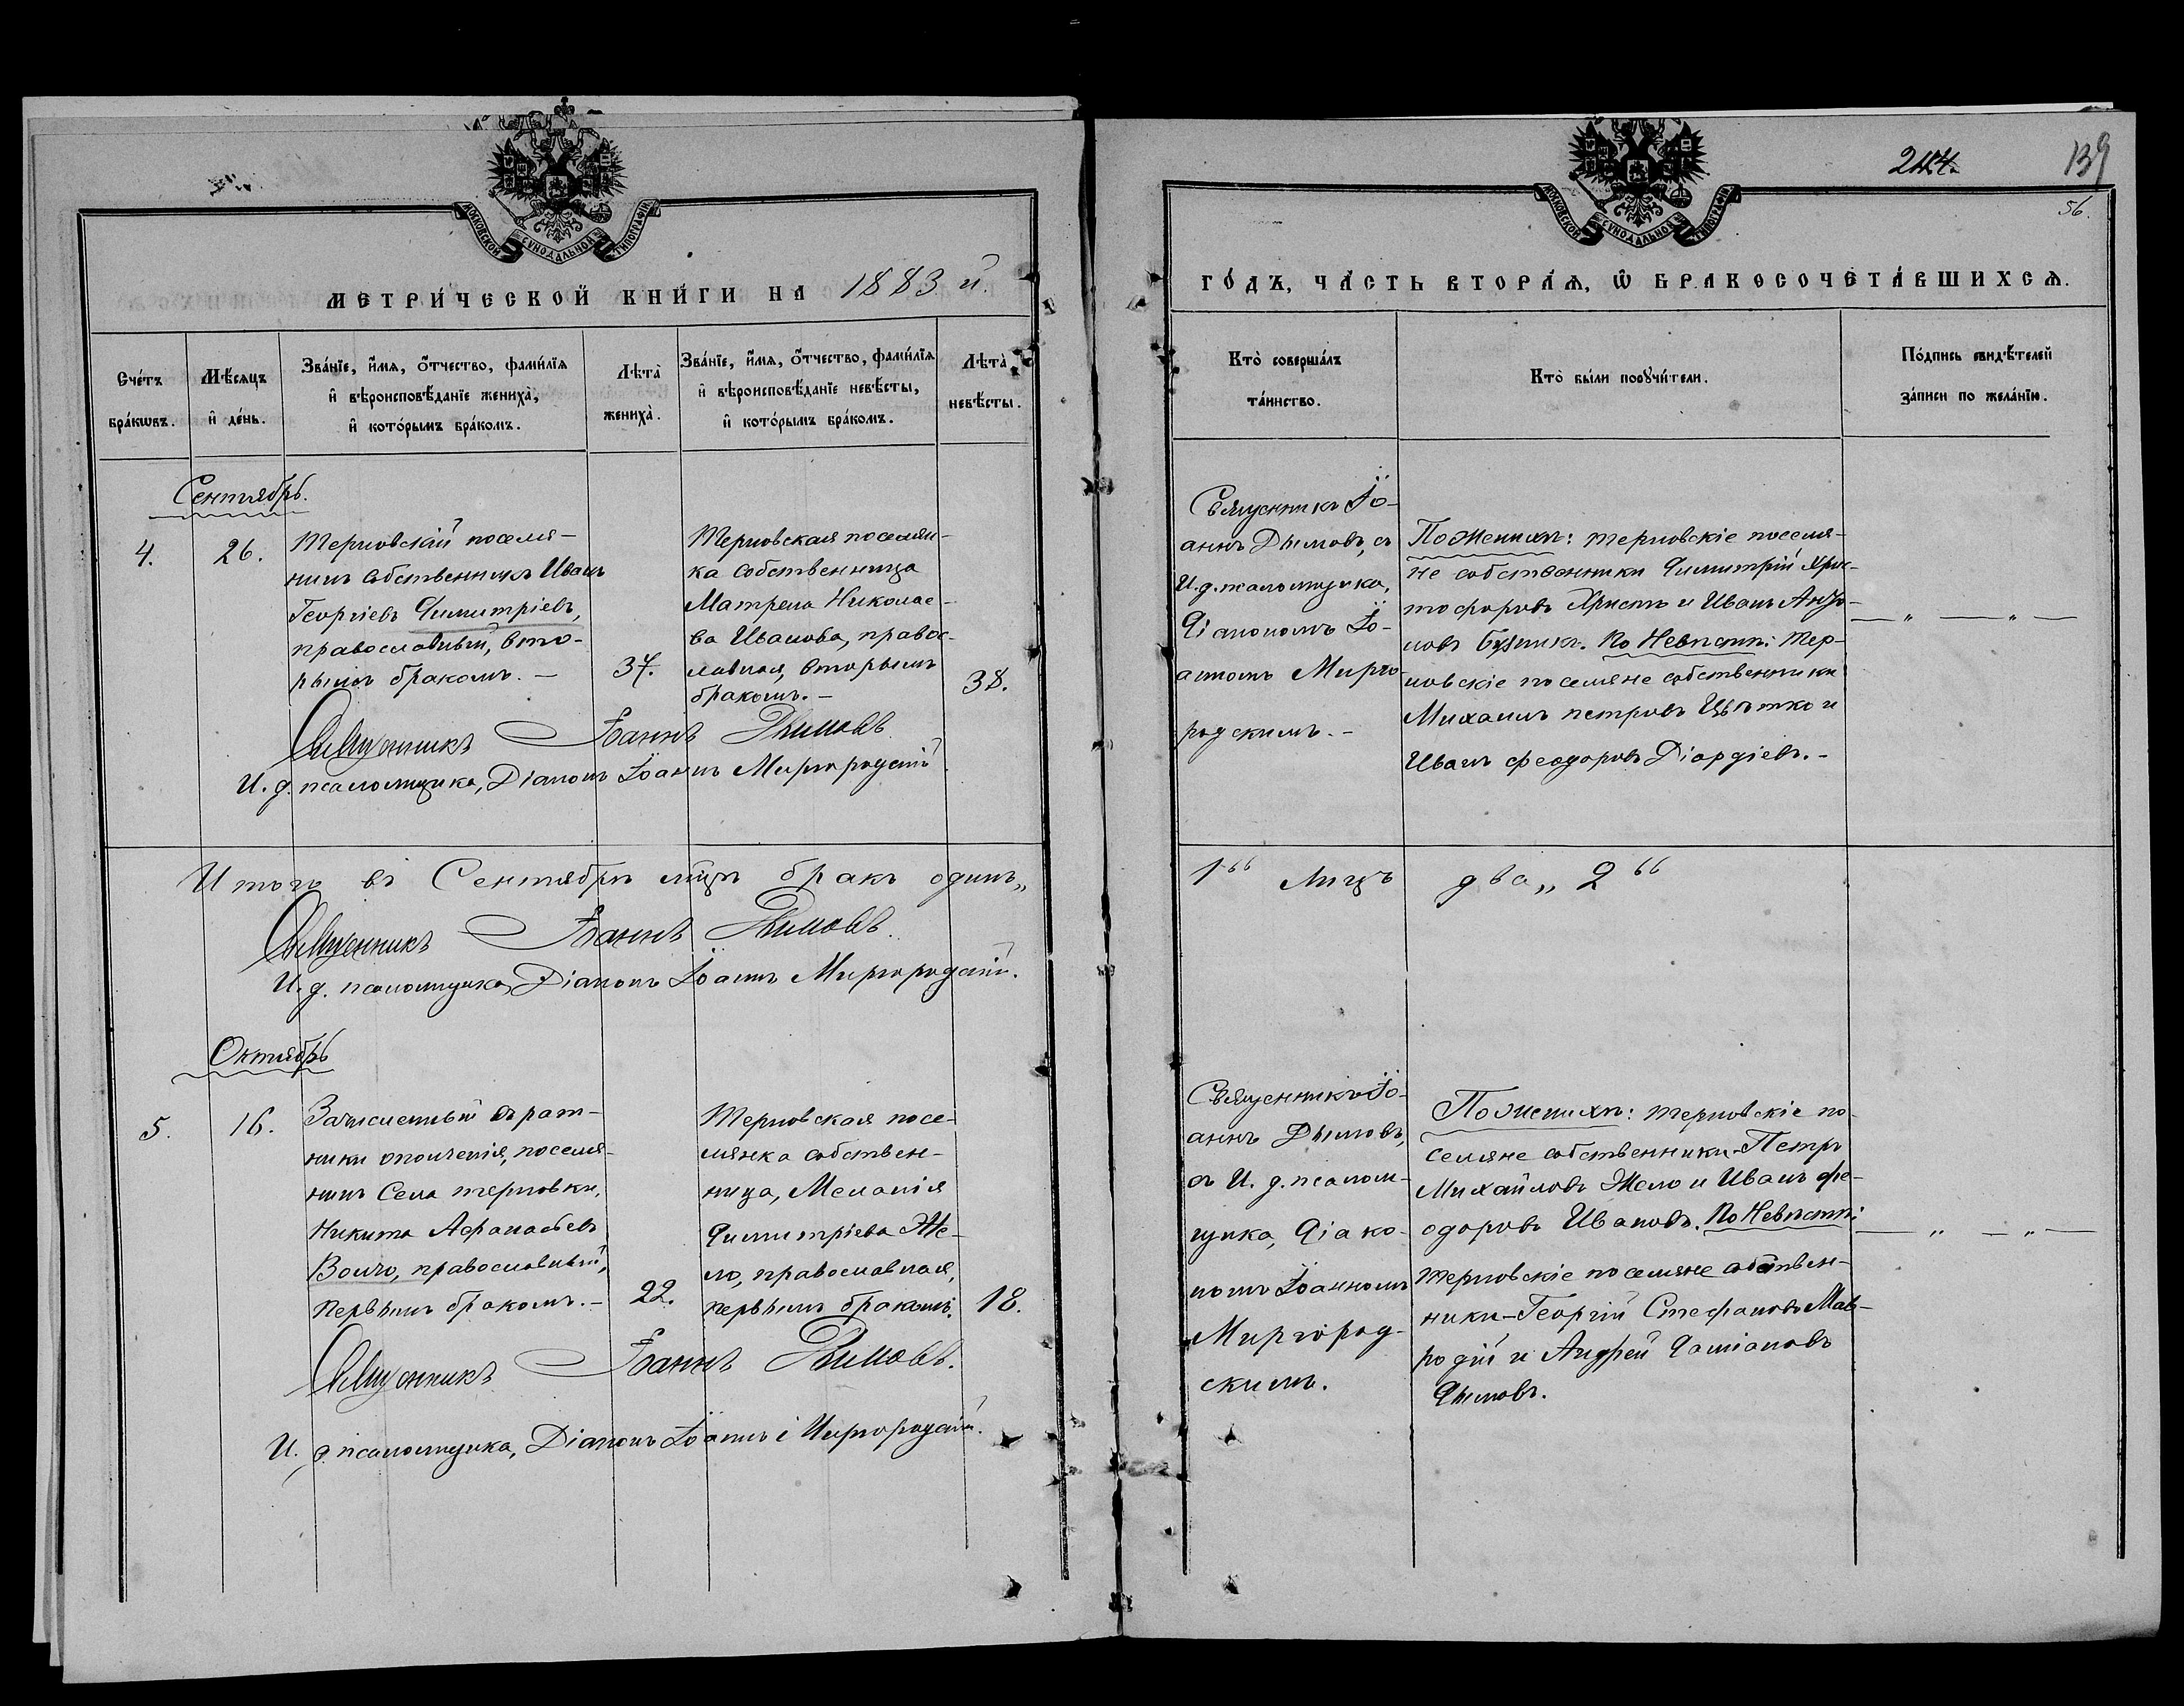 МОСКОВСКОЙ СУНОДАЛЬНОЙ ТИПОГРАФІИ
МЕТРИ́ЧЕСКОЙ КНИ́ГИ НА 1883 й.
Сче́тъ бра́кѡвъ.
Мѣ́сяцъ и҆ де́нь.
Зва́нїе, и҆́мѧ, ѻ҆́тчество, фами́лїѧ
и҆ вѣроисповѣ́данїе жениха̀,
и҆ кото́рымъ бра́комъ.
Лѣта̀
жениха̀.
Зва́нїе, и҆́мѧ, ѻ҆́тчество, фами́лїѧ
и҆ вѣроисповѣ́данїе невѣ́сты,
и҆ кото́рымъ бра́комъ.
Лѣта̀
невѣ́сты.
Сентябрь.
4.
26.
Терновскій поселя-
нинъ собственникъ Иванъ
Георгіевъ Димитріевъ,
православный, вто-
рымъ бракомъ. –
37.
Терновская поселян-
ка собственница
Матрена Николае-
ва Иванова, правос-
лавная, вторымъ
бракомъ. –
38.
Священникъ Іоаннъ Дымовъ
И. д. псаломщика, Діаконъ Іоаннъ Миргородскій
Итого въ Сентябрѣ мѣцѣ бракъ одинъ„
Священникъ Іоаннъ Дымовъ.
И. д. псаломщика, Діаконъ Іоаннъ Миргородскій.
Октябрь
5.
16.
Зачисленный въ рат-
ники ополченія, поселя-
нинъ села Терновки,
Никита Афанасьевъ
Волчо, православный,
первымъ бракомъ. –
22.
Терновская посе-
лянка собствен-
ница, Меланія
Димитріева Же-
ло, православная,
первымъ бракомъ.
18.
Священникъ Іоаннъ Дымовъ.
И. д. псаломщика, Діаконъ Іоаннъ Миргородскій.
139
56.
МОСКОВСКОЙ СУНОДАЛЬНОЙ ТИПОГРАФІИ
ГО́ДЪ, ЧА́СТЬ ВТОРА́Ѧ, Ѿ БРАКОСОЧЕТА́ВШИХСѦ.
Кто̀ соверша́лъ
та́инство.
Кто̀ бы́ли порꙋчи́тели.
По́дпись свидѣ́телей
за́писи по жела́нїю.
Священникъ Іо-
аннъ Дымовъ, съ
И. д. псаломщика,
Діакономъ Іо-
анномъ Мирго-
родскимъ. –
По Женихѣ: терновскіе поселя-
не собственники Димитрій Хрис-
тофоровъ Христъ и Иванъ Анто-
новъ По Невѣстѣ: Тер-
новскіе поселяне собственники
Михаилъ Петровъ Цвѣтко и
Иванъ Феодоровъ Діордіевъ. –
— „ — „ —
1“ лицъ два „ 2“
Священникъ Іо-
аннъ Дымовъ,
съ И. д. псалом-
щика, Діако-
номъ Іоанномъ
Миргород-
скимъ.
По Женихѣ: терновскіе по-
селяне собственники – Петръ
Михайловъ Жело и Иванъ Фе-
одоровъ Ивановъ. По Невѣстѣ:
терновскіе поселяне собствен-
ники – Георгій Стефановъ Мав-
родій и Андрей Даміановъ
Дымовъ.
— „ — „ —